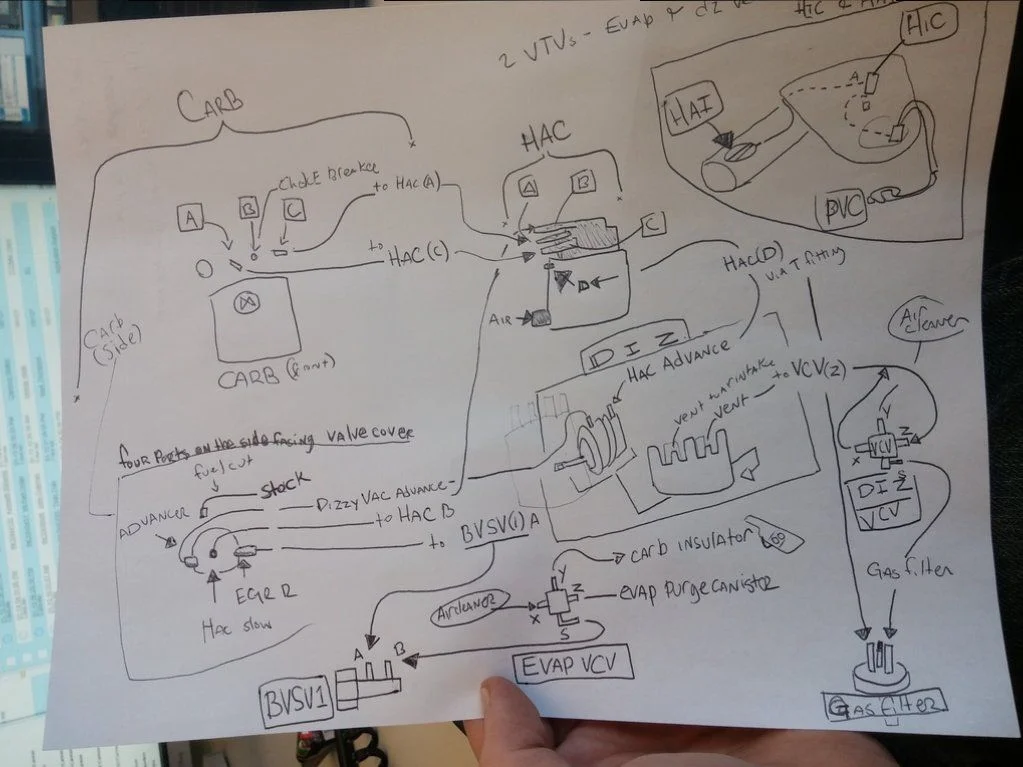 2 VTVs - EVAP & dz
HIC
HAI
A
PVC
CARB
Choke Breaker
to HAC(A)
A
B
C
to
HAC(C)
CARB (front)
Carb
(side)
HAC
A
B
C
D
AIR
HAC(D)
VIA T fitting
Air
cleaner
DIZ
HAC Advance
vent
vent
to VCV(Z)
Y
X
VCV
Z
S
DIZ
VCV
Gas filter
Gas filter
four Ports on the side facing valve cover
fuel cut
Stock
ADVANCER
Dizzy VAC Advance
to HAC B
to BVSV(1) A
EGR R
HAC slow
A
B
BVSV1
Aircleaner
Y
X
Z
S
carb insulator
evap purge canistor
EVAP VCV